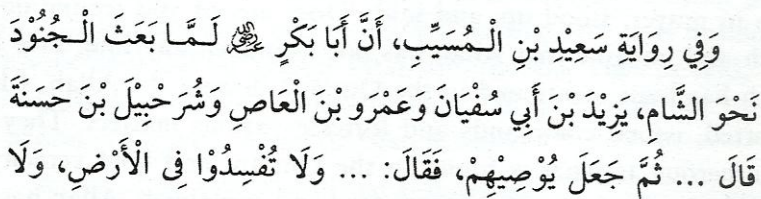 وَفِي رِوَايَةِ سَعِيْدِ بْنِ الْـمُسَيِّبِ، أَنَّ أَبَا بَكْرٍ ﷺ لَـمَّـا بَعَثَ الْـجُنُوْدَ
نَحْوَ الشَّامِ، يَزِيْدَ بْنَ أَبِي سُفْيَانَ وَعَمْرَو بْنَ الْعَاصِ وَشُرَحْبِيْلَ بْنَ حَسَنَةَ
قَالَ ... ثُمَّ جَعَلَ يُوْصِيْهِمْ، فَقَالَ: ... وَلَا تُفْسِدُوْا فِى الْأَرْضِ، وَلَا